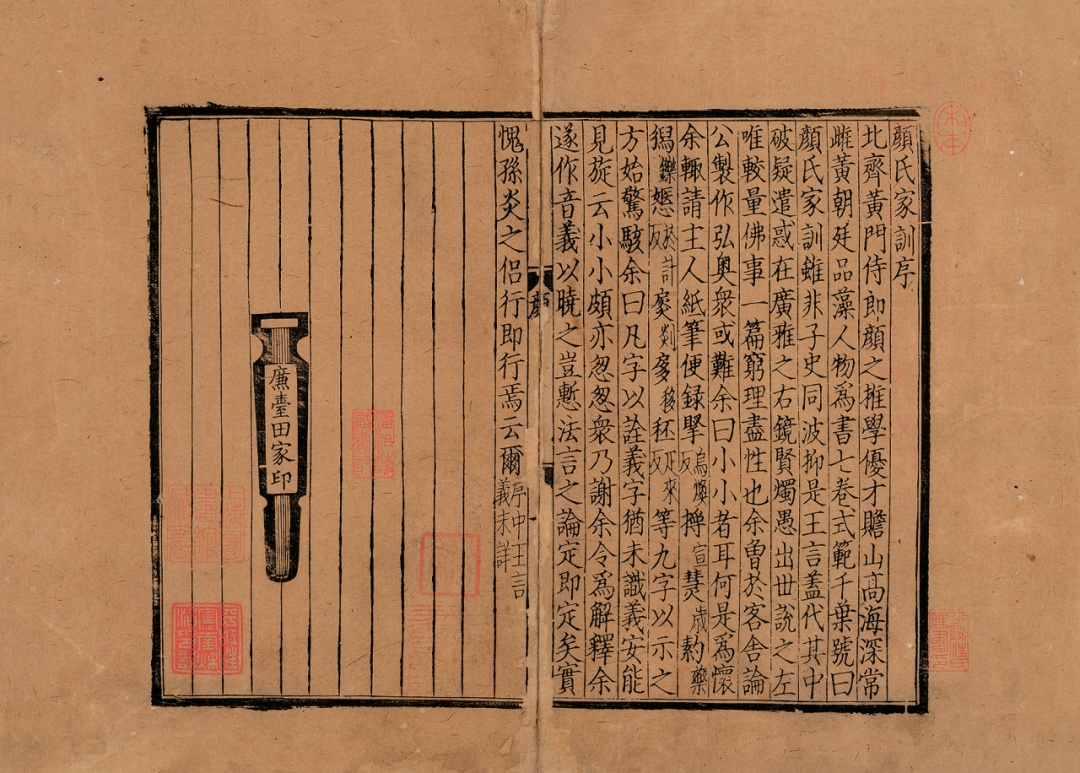 顏氏家訓序
北齊黃門侍郎顏之推學優才贍山高海深常
雌黃朝廷品藻人物爲書七卷式範千葉號曰
顏氏家訓雖非子史同波抑是王言蓋代其中
破疑遣惑在廣雅之右鏡賢燭愚出世說之左
唯較量佛事一篇窮理盡性也余曾於客舍論
公製作弘奧衆或難余曰小小者耳何是爲懷
余輒請主人紙筆便錄掔烏煥反㩋宣熭歲䓻藥
㺃鑠㥷於計反㝥剡㝥移秠疋來反等九字以示之
方始驚駭余曰凡字以詮義字猶未識義安能
見旋云小小頗亦怱怱衆乃謝余令爲解釋余
遂作音義以曉之豈慙法言之論定即定矣實
愧孫炎之侶行即行焉云爾序中王言義未詳
顏
廉臺田家印
宋本